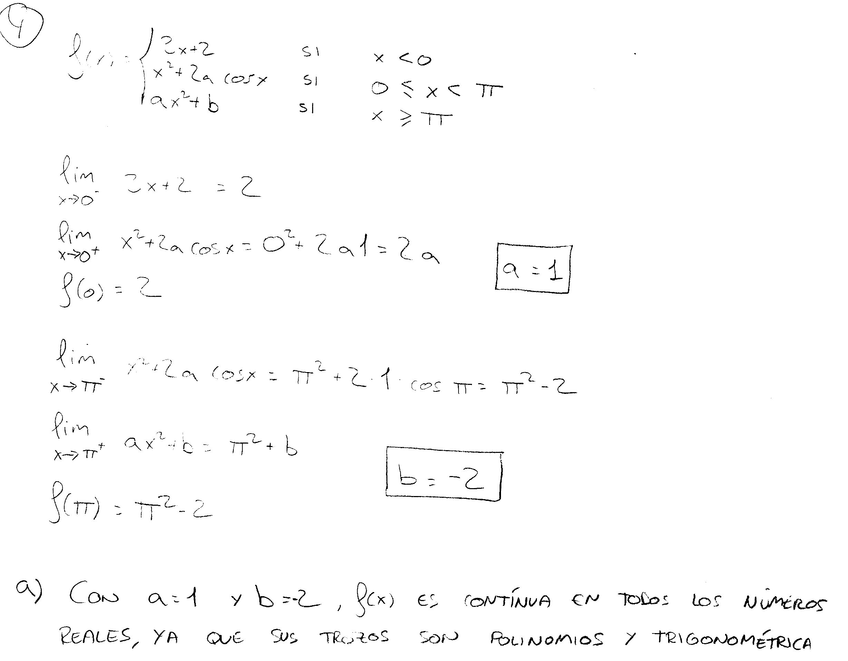 4
f(x) = { 3x+2 si x < 0
x²+2a cosx si 0 ≤ x < π
ax²+b si x ≥ π
lim x→0⁻ 3x+2 = 2
lim x→0⁺ x²+2a cosx = 0²+2a1 = 2a
a = 1
f(0) = 2
lim x→π⁻ x²+2a cosx = π²+2·1·cos π = π²-2
lim x→π⁺ ax²+b = π²+b
b = -2
f(π) = π²-2
a) CON a=1 y b=-2, f(x) ES CONTÍNUA EN TODOS LOS NÚMEROS
REALES, YA QUE SUS TROZOS SON POLINOMIOS Y TRIGONOMÉTRICA